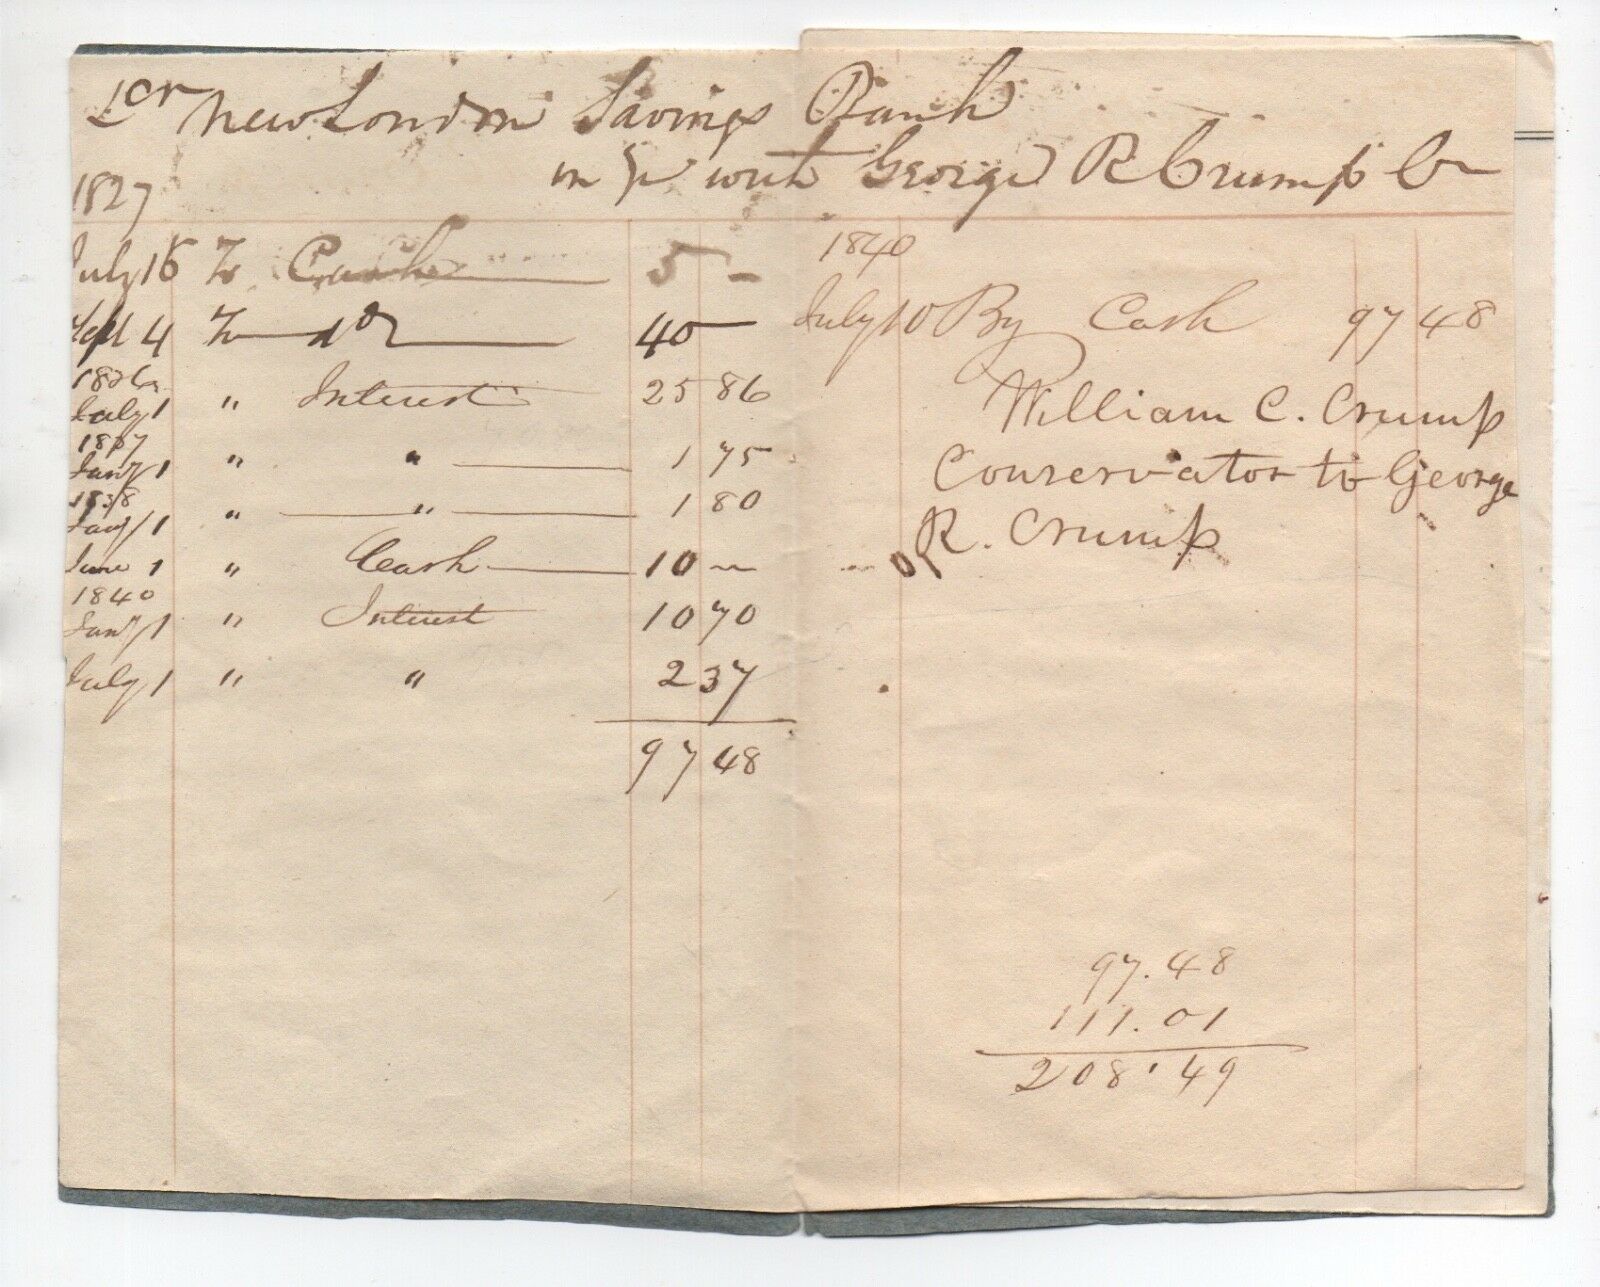 Dr New London Savings Bank
in a/c with George R Crump Cr
1827
July 16 To Cash 5 -
Sept 4 To do 40 -
1836
July 1 " Interest 25 86
1837
Jany 1 " " 1 75
1838
Jany 1 " " 1 80
June 1 " Cash 10 -
1840
Jany 1 " Interest 10 70
July 1 " " 2 37
97 48
1840
July 10 By Cash 97 48
William C. Crump
Conservator to George
R. Crump
97.48
111.01
208.49